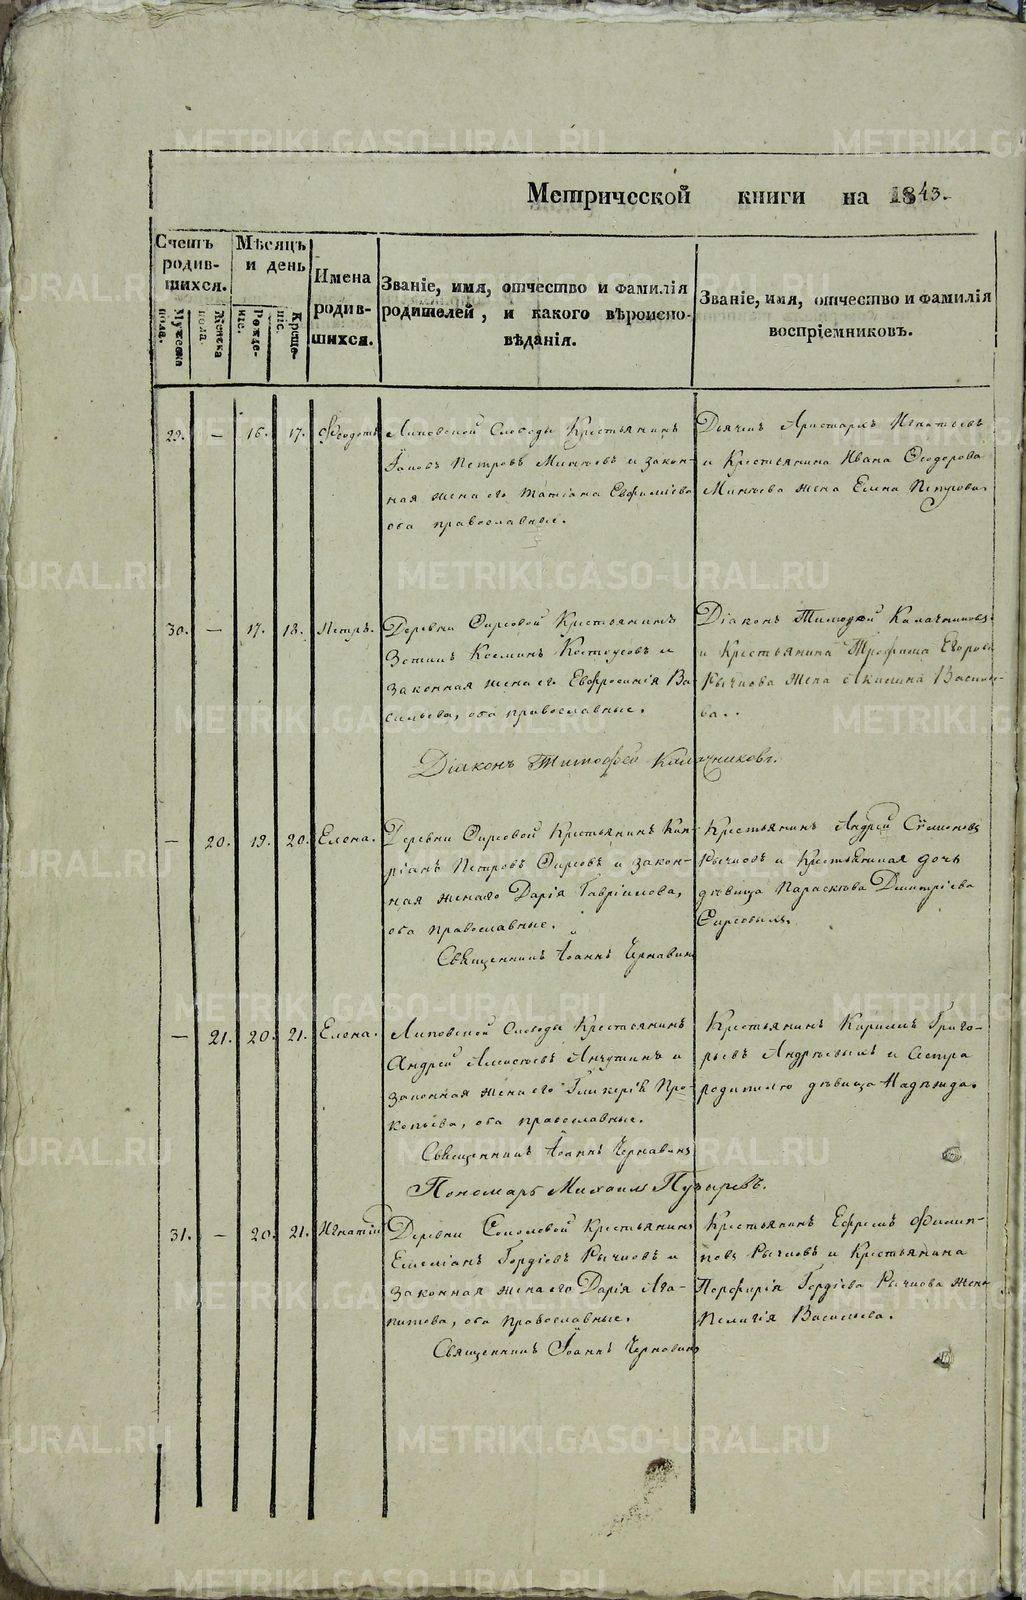 METRIKI.GASO-URAL.RU
Метрической книги на 1843.
Счетъ родив- шихся.
Мѣсяцъ и день
Имена родив- шихся.
Званіе, имя, отчество и фамилія родителей, и какого вѣроиспо- вѣданія.
Званіе, имя, отчество и фамилія воспріемниковъ.
Мужеска пола.
Женска пола.
Рожде- ніе.
Креще- ніе.
29. — 16. 17. Ѳеодотъ
Липовской Слободы Крестьянинъ
Іаковъ Петровъ Минѣевъ и закон-
ная жена его Татіана Евфиміева
оба православные.
Дьячекъ Аристархъ Игнатьевъ
и Крестьянина Ивана Ѳеодорова
Минѣева жена Елена Петрова.
30. — 17. 18. Петръ.
Деревни Фирсовой Крестьянинъ
Зотикъ Косминъ Костоусовъ и
законная жена его Евфросинія Ва-
сильева, оба православные.
Діаконъ Тимофей Калачниковъ
и Крестьянина Трофима Егорова
Рычкова жена Акилина Василье-
ва.
Діаконъ Тимофей Калачниковъ.
— 20. 19. 20. Елена.
Деревни Фирсовой Крестьянинъ Кип-
ріанъ Петровъ Фирсовъ и закон-
ная жена его Дарія Гавріилова,
оба православные.
Священникъ Іоаннъ Чернавинъ
Крестьянинъ Андрей Симеоновъ
Рычковъ и Крестьянская дочь
дѣвица Параскева Димитріева
Фирсовыхъ.
— 21. 20. 21. Елена.
Липовской Слободы Крестьянинъ
Андрей Алексѣевъ Анчутинъ и
законная жена его Гликерія Про-
копьева, оба православные.
Священникъ Іоаннъ Чернавинъ
Пономарь Михаилъ Пузыревъ.
Крестьянинъ Кирилъ Григо-
рьевъ Андреевыхъ и сестра
родителю дѣвица Надежда.
31. — 20. 21. Игнатій
Деревни Соколовой Крестьянинъ
Емеліанъ Гордіевъ Рычковъ и
законная жена его Дарія Ага-
питова, оба православные.
Священникъ Іоаннъ Чернавинъ
Крестьянинъ Ефремъ Филип-
повъ Рычковъ и Крестьянина
Порфирія Гордіева Рычкова жена
Пелагія Васильева.